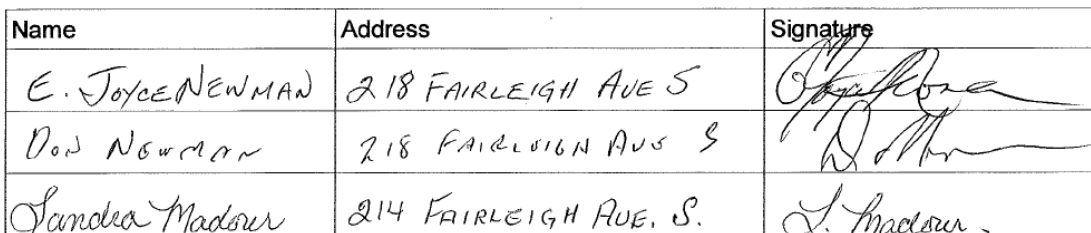 Name Address Signature
E. JOYCE NEWMAN 218 FAIRLEIGH AVE S
DON NEWMAN 218 FAIRLEIGH AVE S
Sandra Madour 214 FAIRLEIGH AVE. S. S. Madour.